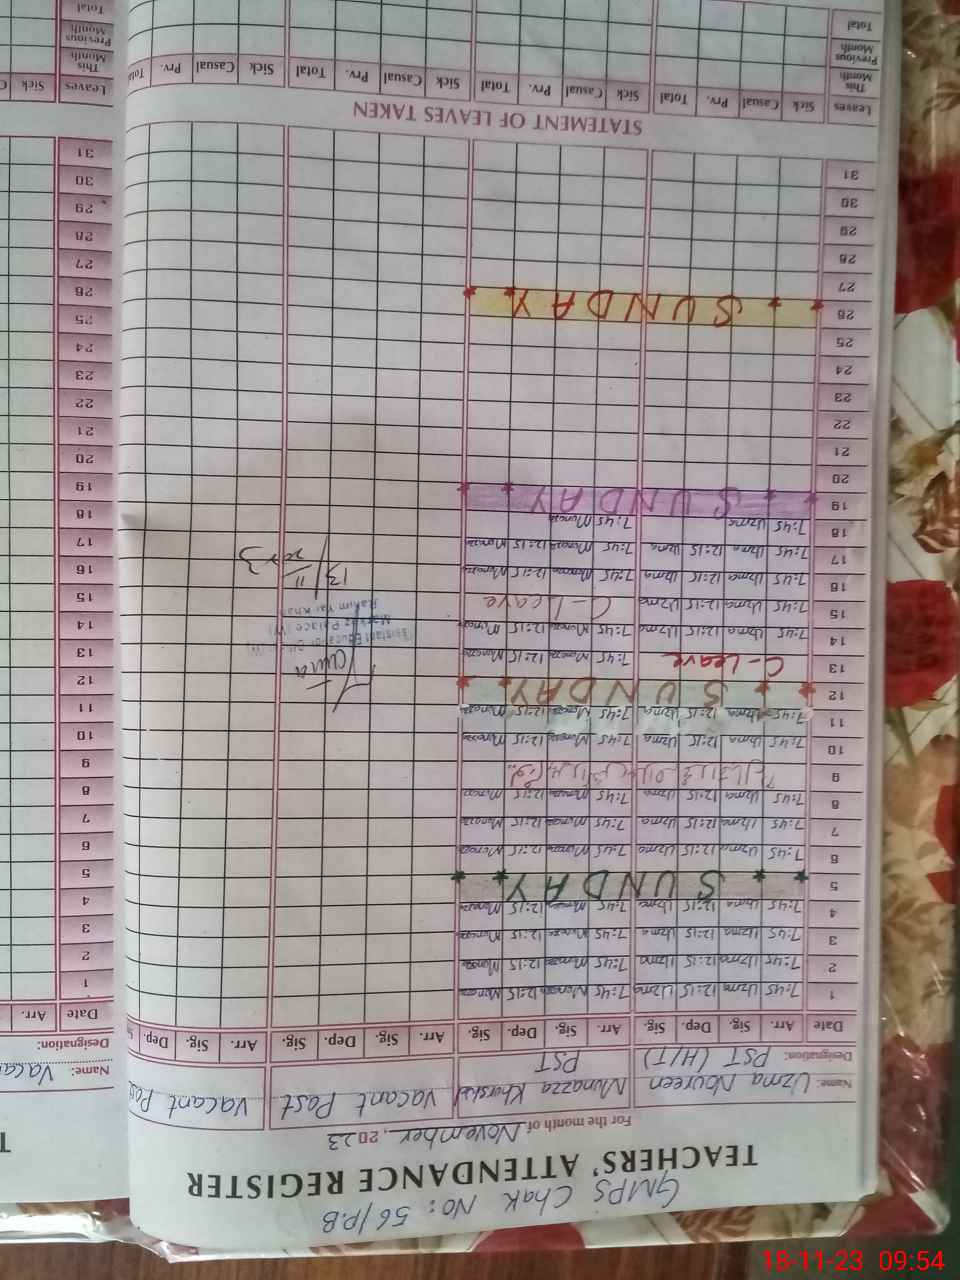 GMPS Chak No: 56/P.B
TEACHERS' ATTENDANCE REGISTER
For the month of November, 2023
Name: Uzma Noureen Munazza Khurshid Vacant Post Vacant Pos
Designation: PST (H/T) PST
Date Arr. Sig. Dep. Sig. Arr. Sig. Dep. Sig. Arr. Sig. Dep. Sig. Arr. Sig. Dep.
1 7:45 Uzma 12:15 Uzma 7:45 Munazza 12:15 Munazza
2 7:45 Uzma 12:15 Uzma 7:45 Munazza 12:15 Munazza
3 7:45 Uzma 12:15 Uzma 7:45 Munazza 12:15 Munazza
4 7:45 Uzma 12:15 Uzma 7:45 Munazza 12:15 Munazza
5 SUNDAY
6 7:45 Uzma 12:15 Uzma 7:45 Munazza 12:15 Munazza
7 7:45 Uzma 12:15 Uzma 7:45 Munazza 12:15 Munazza
8 7:45 Uzma 12:15 Uzma 7:45 Munazza 12:15 Munazza
9
10 7:45 Uzma 12:15 Uzma 7:45 Munazza 12:15 Munazza
11 7:45 Uzma 12:15 Uzma 7:45 Munazza 12:15 Munazza
12 SUNDAY
13 C-Leave 7:45 Munazza 12:15 Munazza
14 7:45 Uzma 12:15 Uzma 7:45 Munazza 12:15 Munazza
15 7:45 Uzma 12:15 Uzma C-Leave
16 7:45 Uzma 12:15 Uzma 7:45 Munazza 12:15 Munazza
17 7:45 Uzma 12:15 Uzma 7:45 Munazza 12:15 Munazza
18 7:45 Uzma 7:45 Munazza
19 SUNDAY
20
21
22
23
24
25
26 SUNDAY
27
28
29
30
31
Assistant Education
Markaz Palace (W)
Rahim Yar Khan
13/11/2023
STATEMENT OF LEAVES TAKEN
Leaves Sick Casual Prv. Total Sick Casual Prv. Total Sick Casual Prv. Total Sick Casual Prv.
This Month
Previous Month
Total
Name: Vaca
Designation:
Date Arr.
1
2
3
4
5
6
7
8
9
10
11
12
13
14
15
16
17
18
19
20
21
22
23
24
25
26
27
28
29
30
31
Leaves Sick
This Month
Previous Month
Total
18-11-23 09:54